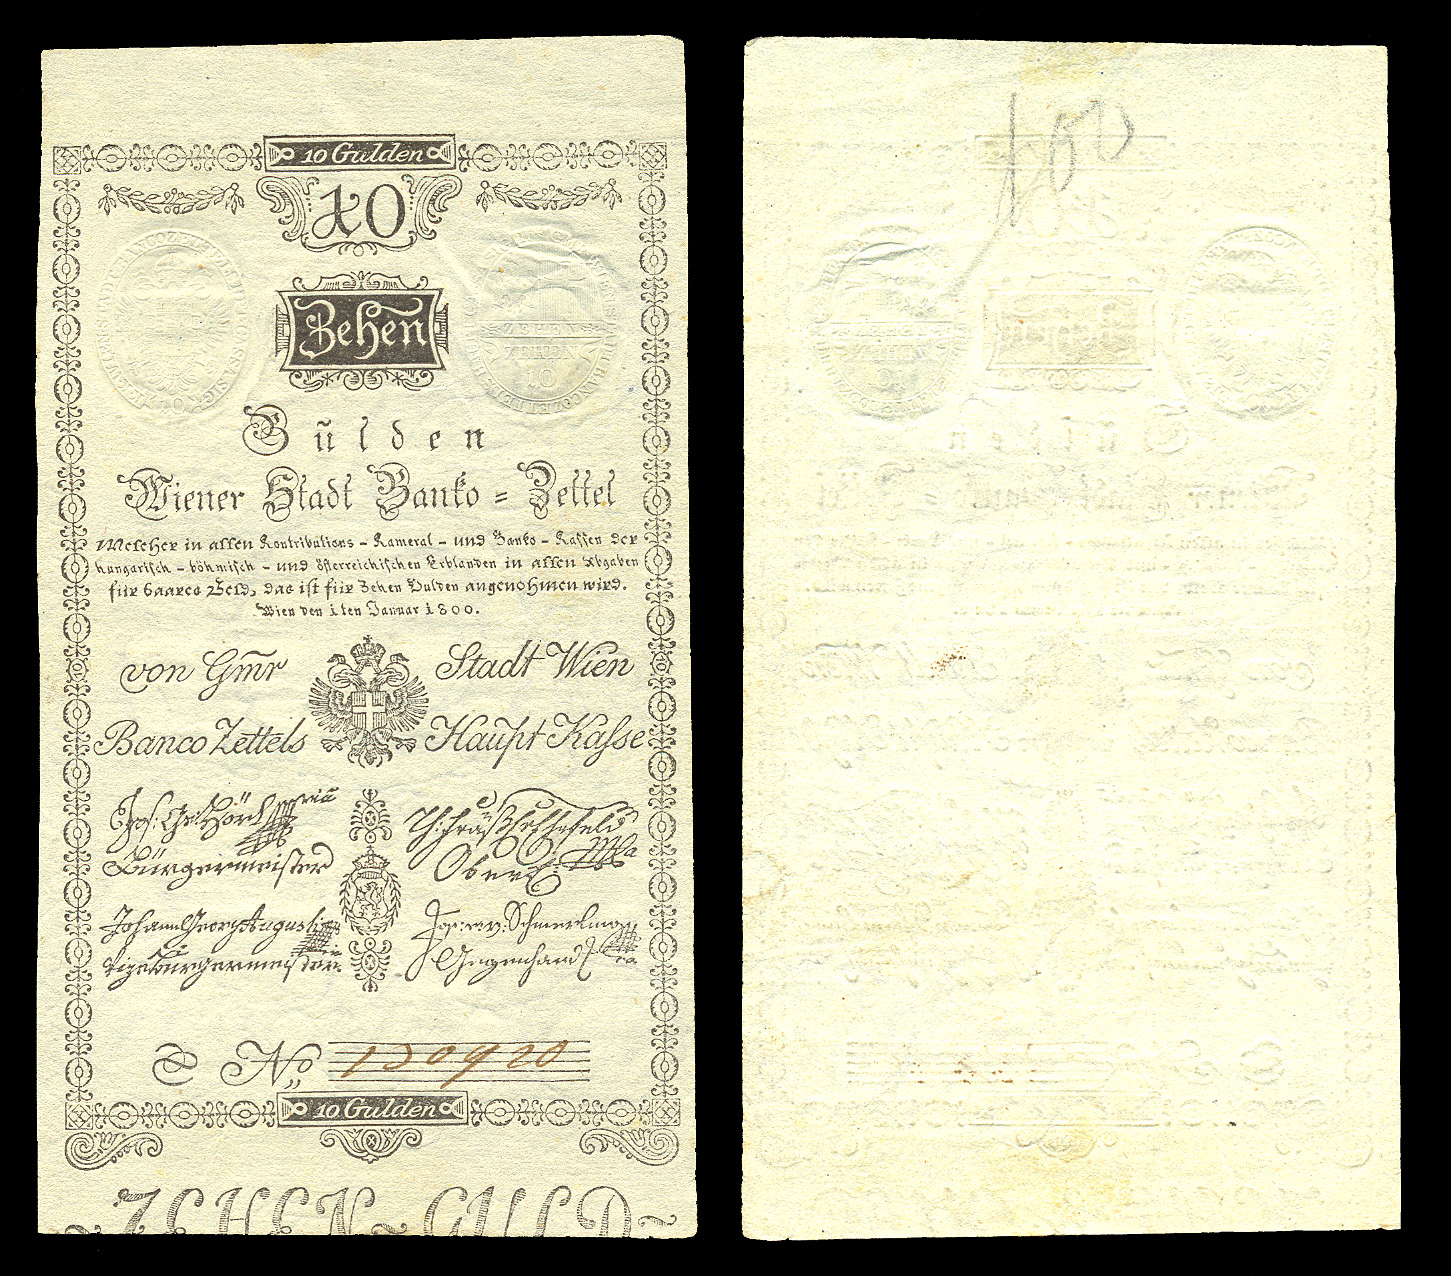 10 Gulden
10
Zehen
ZEHEN
ZEHEN
10
Gulden
Wiener Stadt Banko = Zettel
Welcher in allen Kontributions - Kameral - und Banko - Kassen der
hungarisch - böhmisch - und österreichischen Erblanden in allen Abgaben
für baares Geld, das ist für Zehen Gulden angenohmen wird.
Wien den 1ten Januar 1800.
von Gmr Stadt Wien
Banco Zettels Haupt Kasse
Bürgermeister
Johann Georg Augusti
Vizebürgermeister
No 130920
10 Gulden
ZEHEN GULD
100